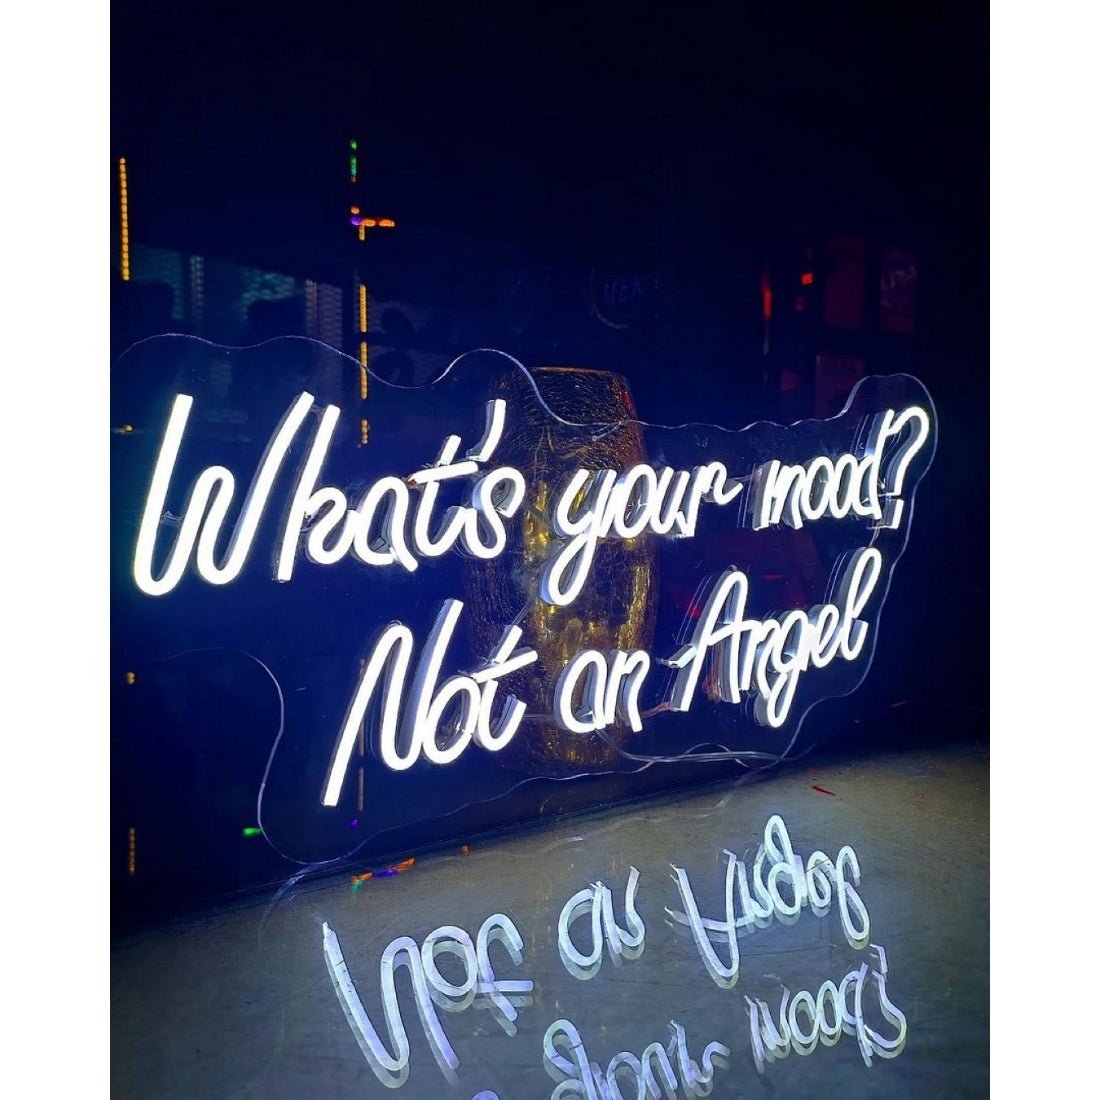 What's your mood?
Not an Angel